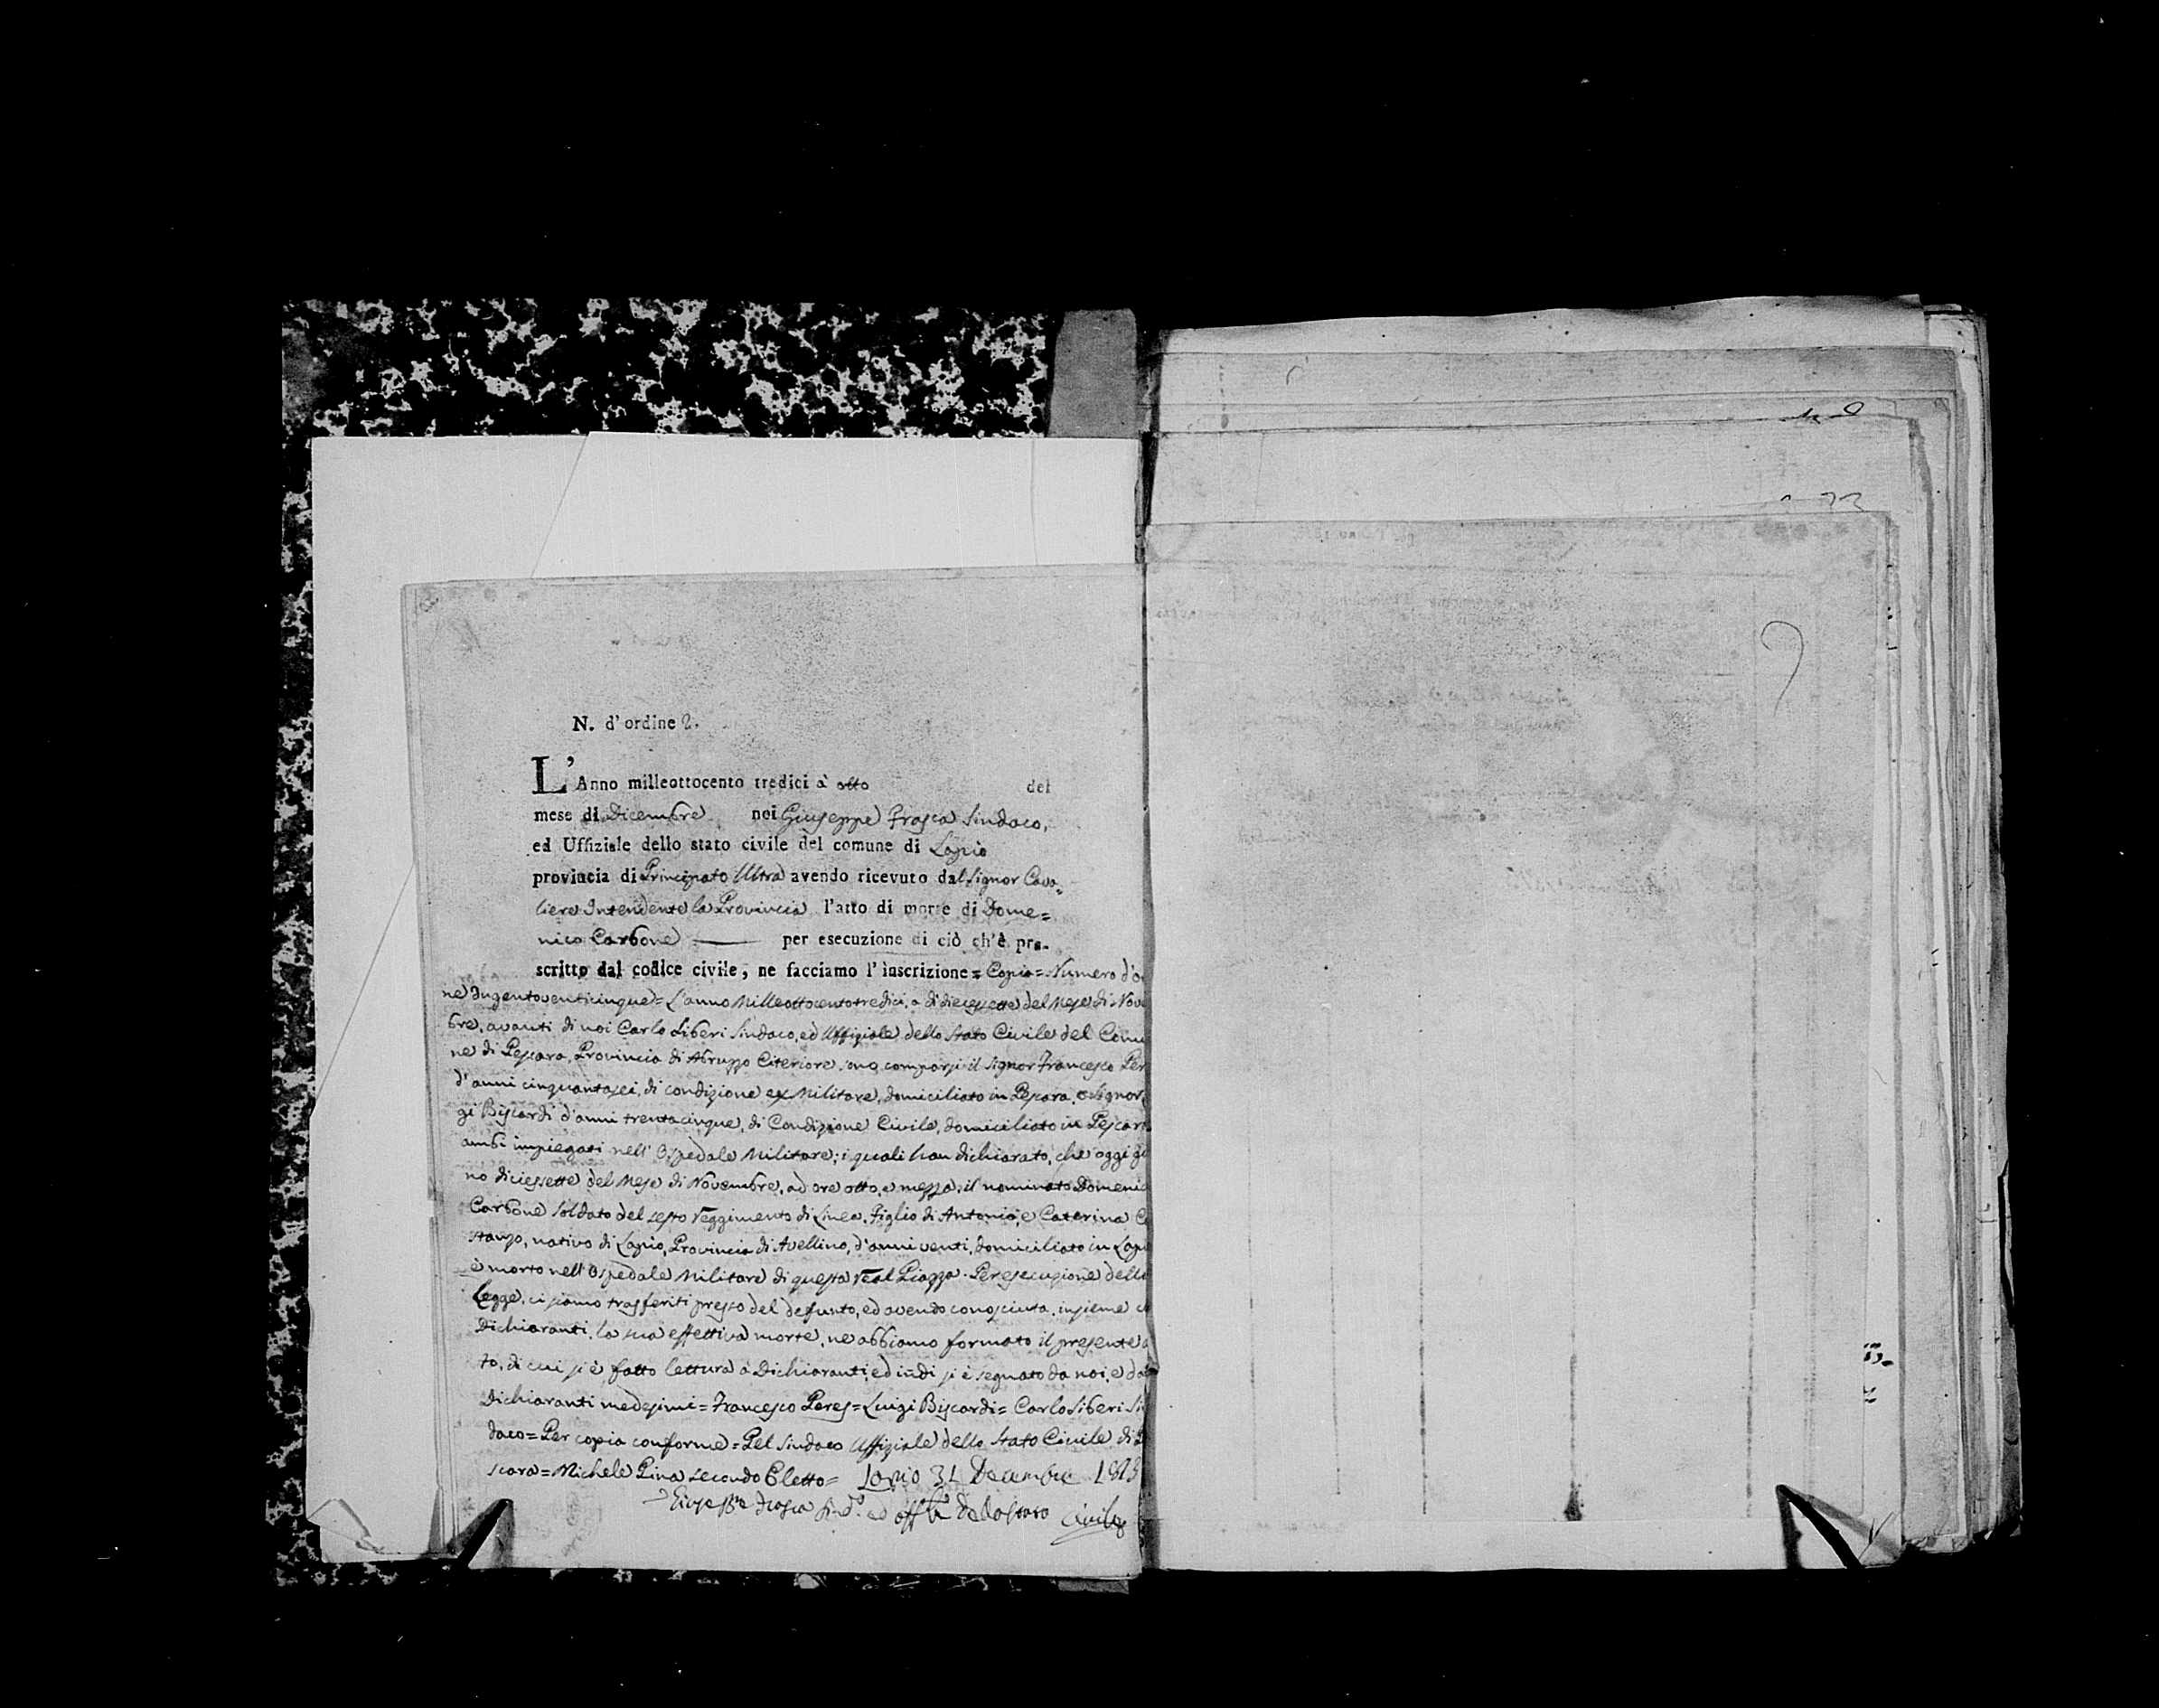 N. d'ordine 2.
L'Anno milleottocento tredici à otto del
mese di Dicembre noi Giuseppe Frasca Sindaco,
ed Uffiziale dello stato civile del comune di Lapio
provincia di Principato Ultra avendo ricevuto dal Signor Cava=
liere Intendente la Provincia l'atto di morte di Dome=
nico Carbone per esecuzione di ciò ch'è pre-
scritto dal codice civile, ne facciamo l'inscrizione = Copia = Numero d'or
ne dugentoventicinque = L'anno Milleottocentotredici, a dì diecessette del Mese di Nove
bre, avanti di noi Carlo Liberi Sindaco, ed Uffiziale dello Stato Civile del Comu
ne di Pescara, Provincia di Abruzzo Citeriore, sono comparsi il Signor Francesco Per
d'anni cinquantasei, di condizione ex Militare, domiciliato in Pescara, e Signor
gi Biscardi d'anni trentacinque, di Condizione Civile, domiciliato in Pescar
ambi impiegati nell'Ospedale Militare; i quali han dichiarato, che oggi gi
no diciessette del Mese di Novembre, ad ore otto, e mezza, il nominato Domenic
Carbone Soldato del sesto reggimento di Linea, Figlio di Antonio, e Caterina Co
stanzo, nativo di Lapio, Provincia di Avellino, d'anni venti, domiciliato in Lapi
è morto nell'Ospedale Militare di questa real Piazza. Per esecuzione della
Legge, ci siamo trasferiti presso del defunto, ed avendo conosciuta, insieme c
Dichiaranti, la sua effettiva morte, ne abbiamo formato il presente a
to, di cui si è fatto lettura a Dichiaranti, ed indi si è segnato da noi, e da
Dichiaranti medesimi = Francesco Peres = Luigi Biscardi = Carlo Liberi Si
daco = Per copia conforme = Pel Sindaco Uffiziale dello Stato Civile di
scara = Michele Pina secondo Eletto = Lapio 31 Decembre 1813
Frasca Sind.º ed dello stato civile